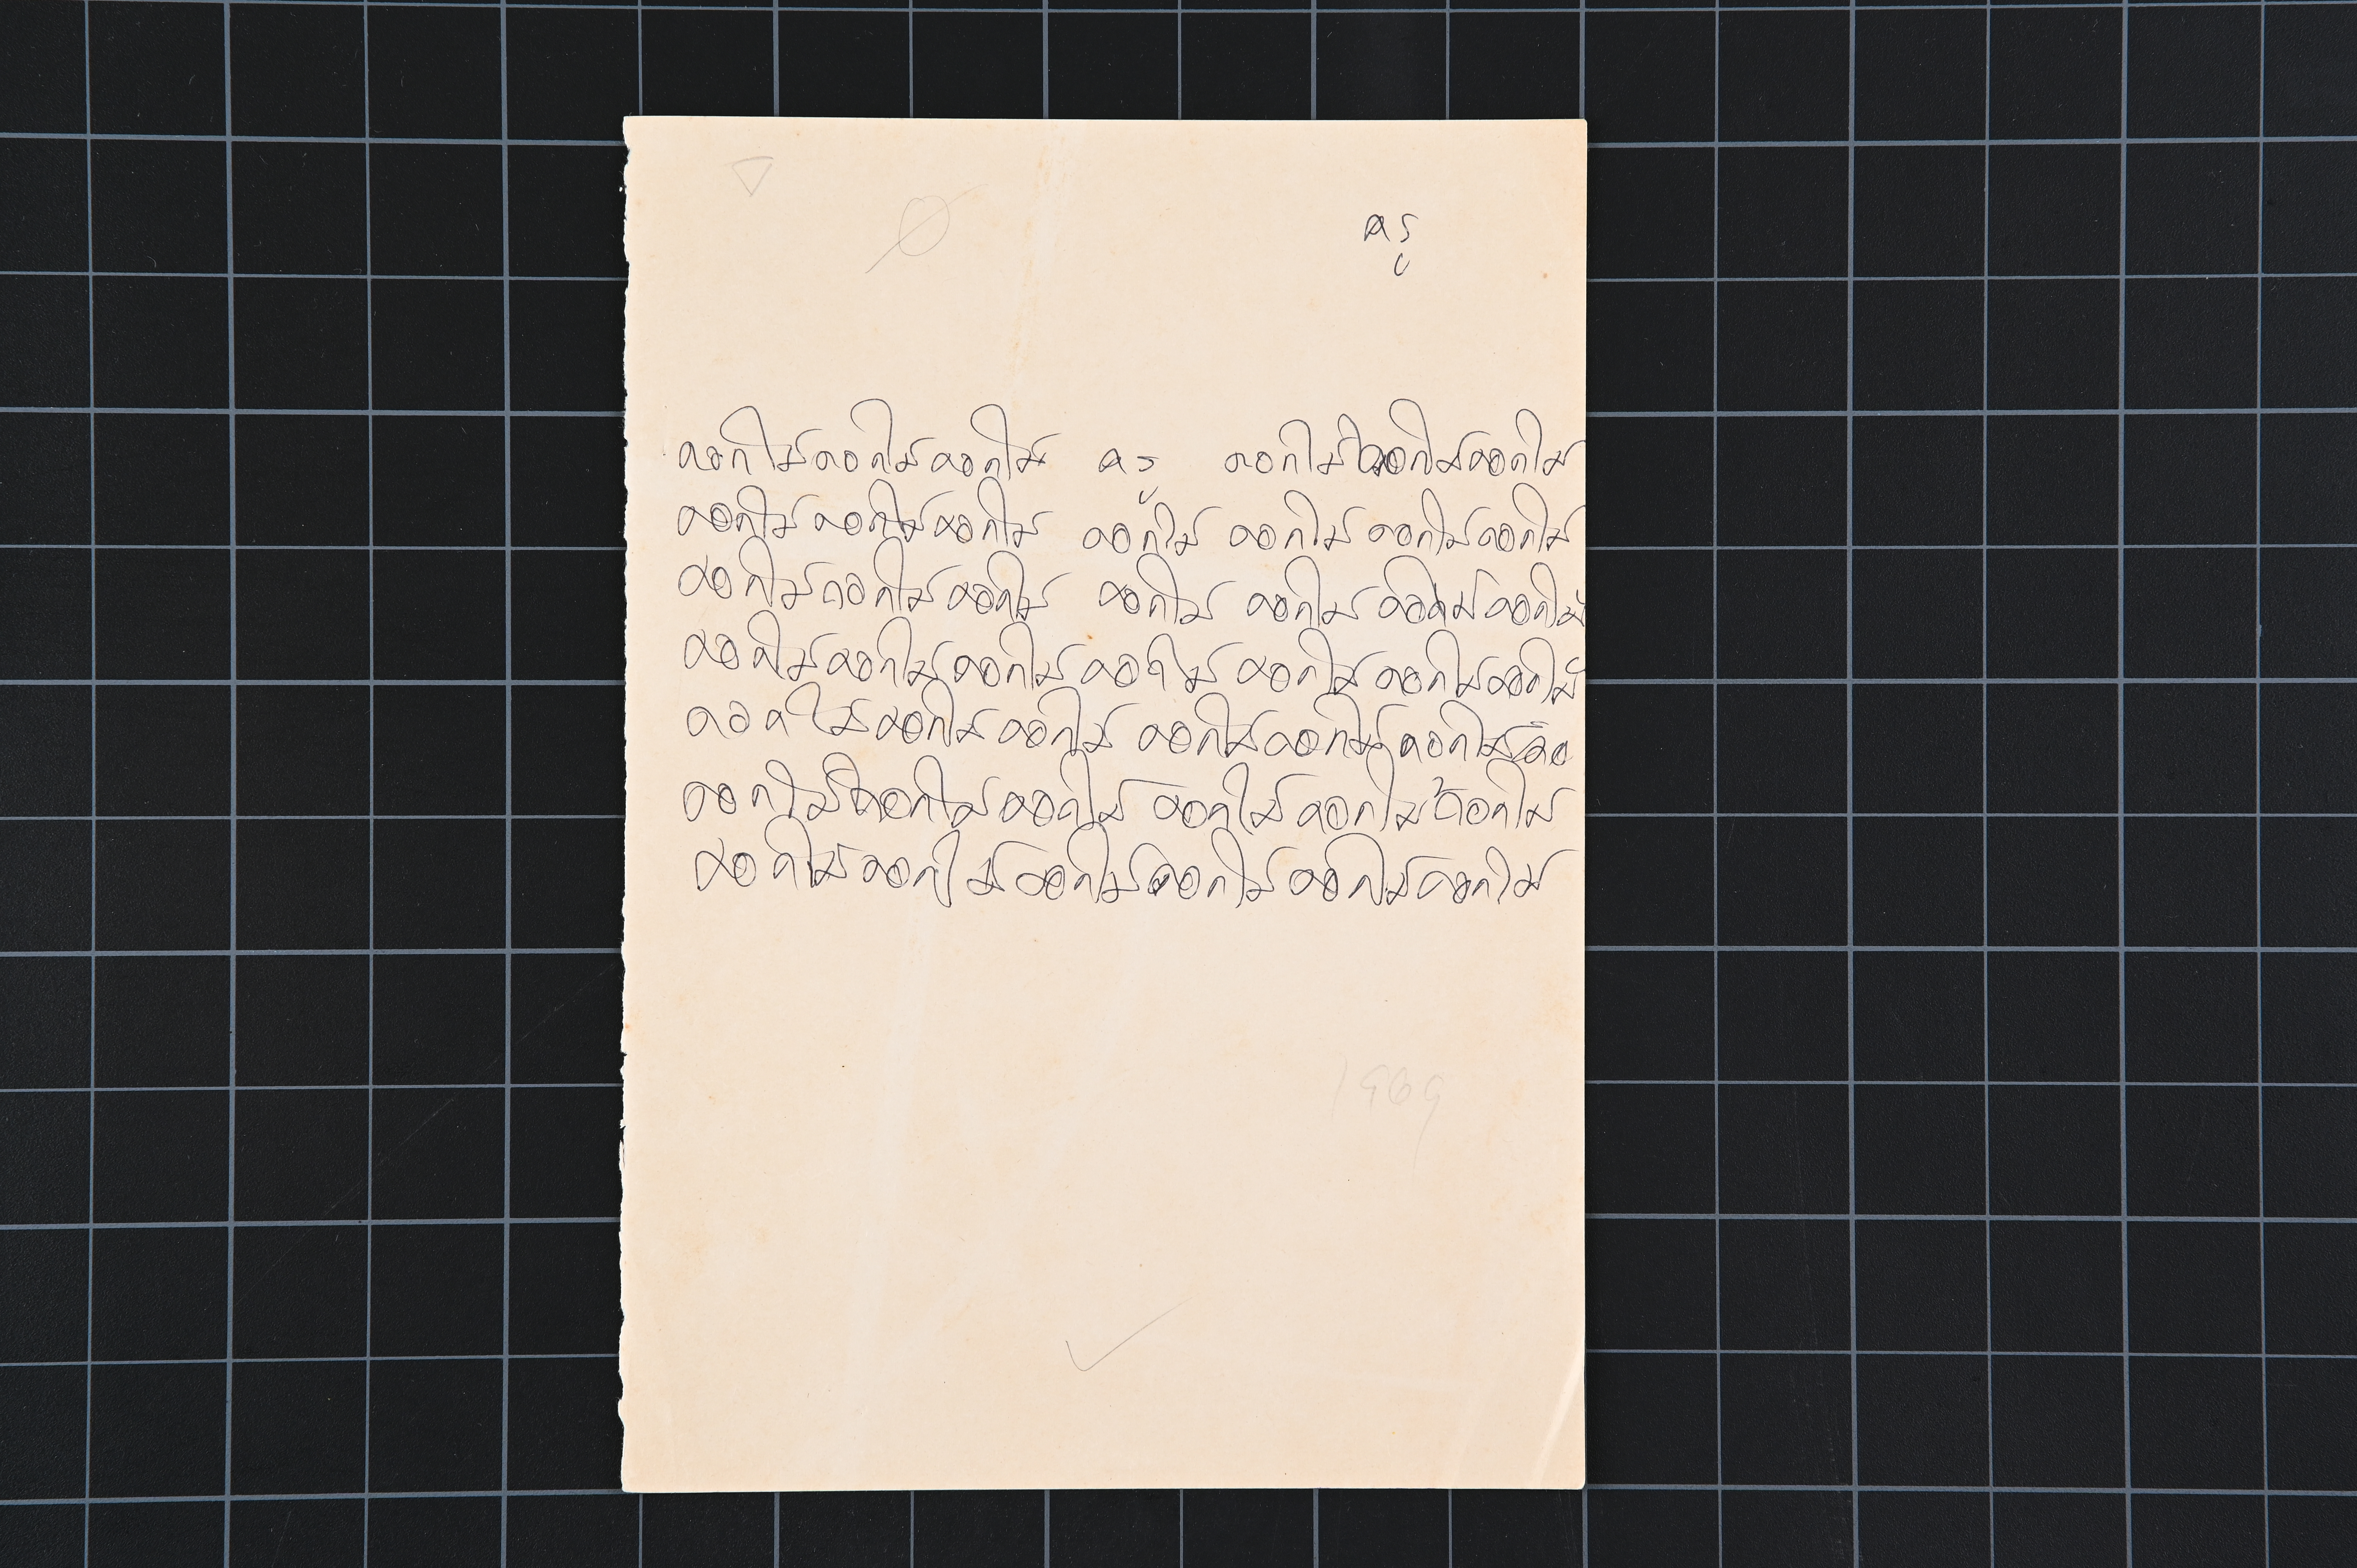 ครู
ดอกไม้ดอกไม้ดอกไม้ ครู ดอกไม้ดอกไม้ดอกไม้
ดอกไม้ ดอกไม้ดอกไม้ ดอกไม้ ดอกไม้ ดอกไม้ดอกไม้
ดอกไม้ดอกไม้ดอกไม้ ดอกไม้ ดอกไม้ ดอกไม้ดอกไม้
ดอกไม้ดอกไม้ดอกไม้ ดอกไม้ ดอกไม้ ดอกไม้ดอกไม้
ดอกไม้ดอกไม้ ดอกไม้ ดอกไม้ดอกไม้ ดอกไม้ดอ
ดอกไม้ดอกไม้ดอกไม้ ดอกไม้ดอกไม้ดอกไม้
ดอกไม้ดอกไม้ดอกไม้ดอกไม้ดอกไม้ดอกไม้
1969